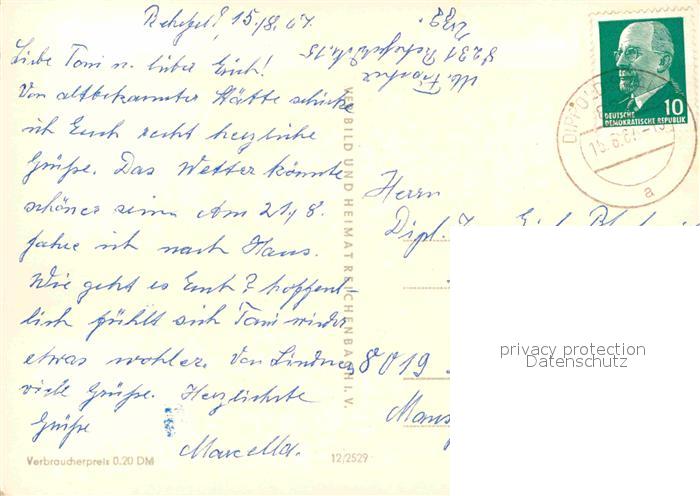 Rehefeld, 15./8. 67.
Liebe Toni u. lieber Erich!
Von altbekannter Stätte schicke
ich Euch recht herzliche
Grüße. Das Wetter könnte
schöner sein. Am 21./8.
fahre ich nach Haus.
Wie geht es Euch? Hoffent-
lich fühlt sich Toni wieder
etwas wohler. Von Lindners
viele Grüße. Herzlichste
Grüße
Marcella.
Verbraucherpreis 0.20 DM
12/2529
VEB BILD UND HEIMAT REICHENBACH I. V.
10
DEUTSCHE
DEMOKRATISCHE REPUBLIK
15.8.67
a
Herrn
Dipl.
8019
privacy protection
Datenschutz